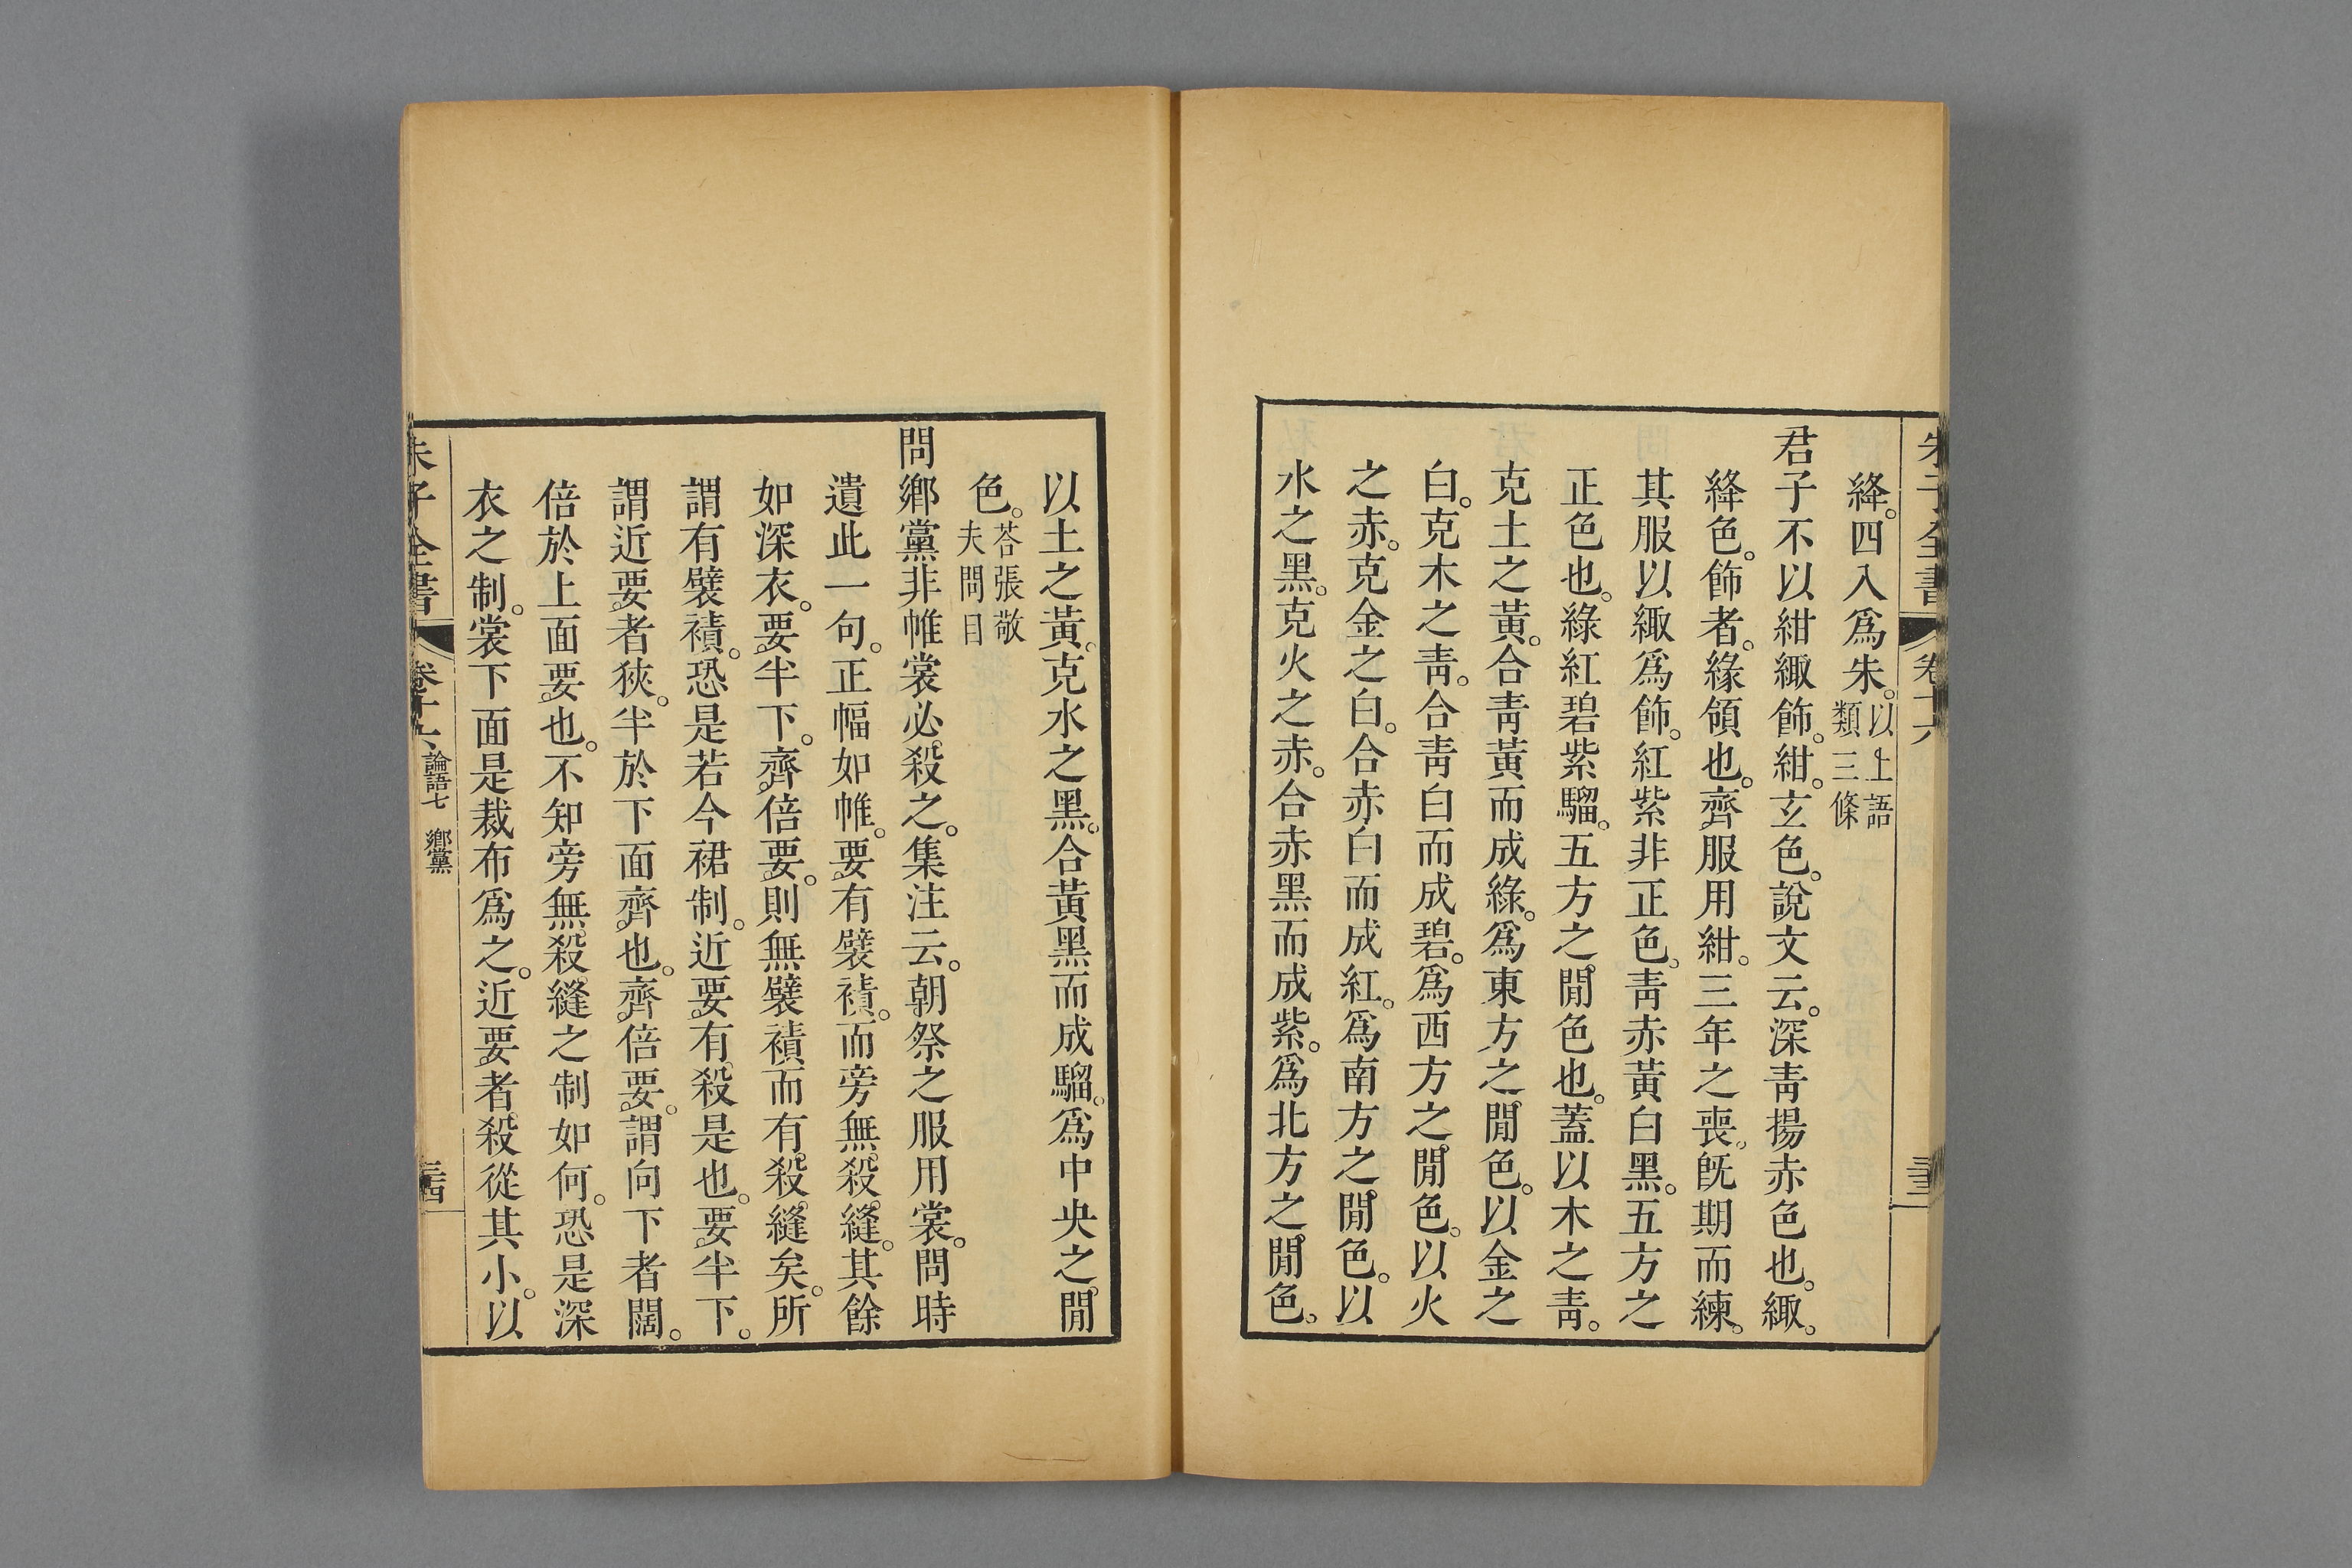 絳。四入爲朱。以上語類三條
君子不以紺緅飾。紺。玄色。說文云。深靑揚赤色也。緅。
絳色。飾者。緣領也。齊服用紺。三年之喪。旣期而練。
其服以緅爲飾。紅紫非正色。靑赤黃白黑。五方之
正色也。綠紅碧紫騮。五方之閒色也。蓋以木之靑。
克土之黃。合靑黃而成綠。爲東方之閒色。以金之
白。克木之靑。合靑白而成碧。爲西方之閒色。以火
之赤。克金之白。合赤白而成紅。爲南方之閒色。以
水之黑。克火之赤。合赤黑而成紫。爲北方之閒色。
以土之黃。克水之黑。合黃黑而成騮。爲中央之閒
色。荅張敬夫問目
問鄉黨非帷裳必殺之。集注云。朝祭之服用裳。問時
遺此一句。正幅如帷。要有襞積。而旁無殺縫。其餘
如深衣。要半下。齊倍要。則無襞積而有殺縫矣。所
謂有襞積。恐是若今裙制。近要有殺是也。要半下。
謂近要者狹。半於下面齊也。齊倍要。謂向下者闊。
倍於上面要也。不知旁無殺縫之制如何。恐是深
衣之制。裳下面是裁布爲之。近要者殺從其小。以
朱子全書
卷十六
論語七 鄉黨
三四